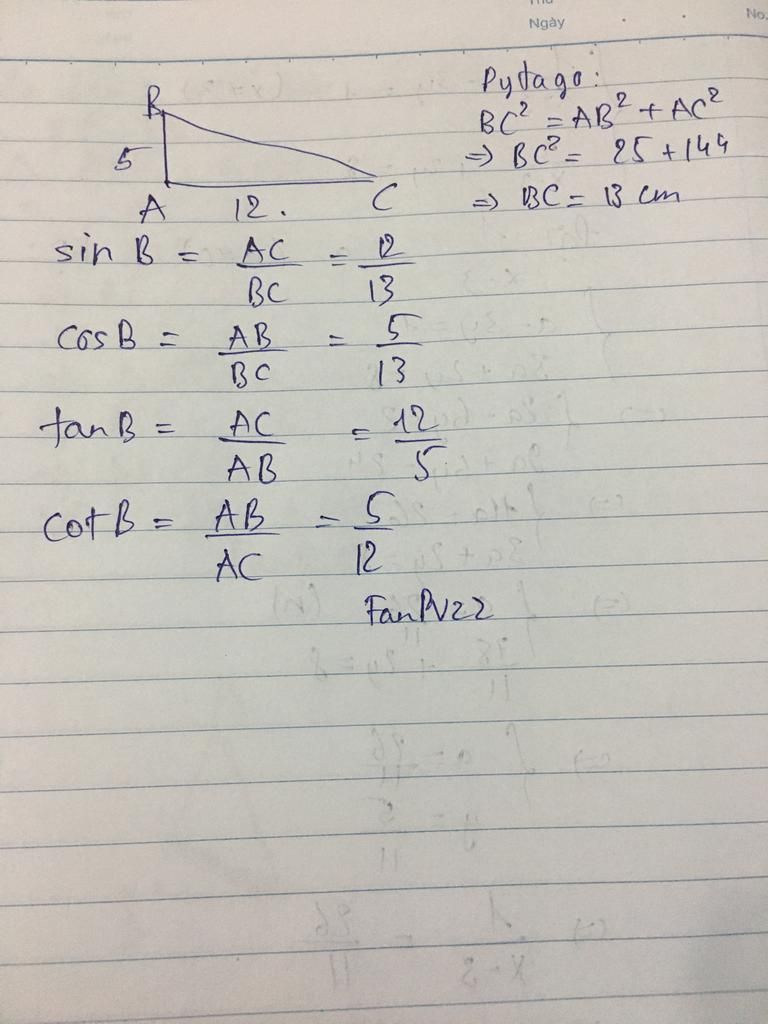 Thứ
Ngày
No.
B
5
A 12. C
Pytago:
BC² = AB² + AC²
=> BC² = 25 + 144
=> BC = 13 cm
sin B = AC/BC = 12/13
cosB = AB/BC = 5/13
tanB = AC/AB = 12/5
cotB = AB/AC = 5/12
FanPV22